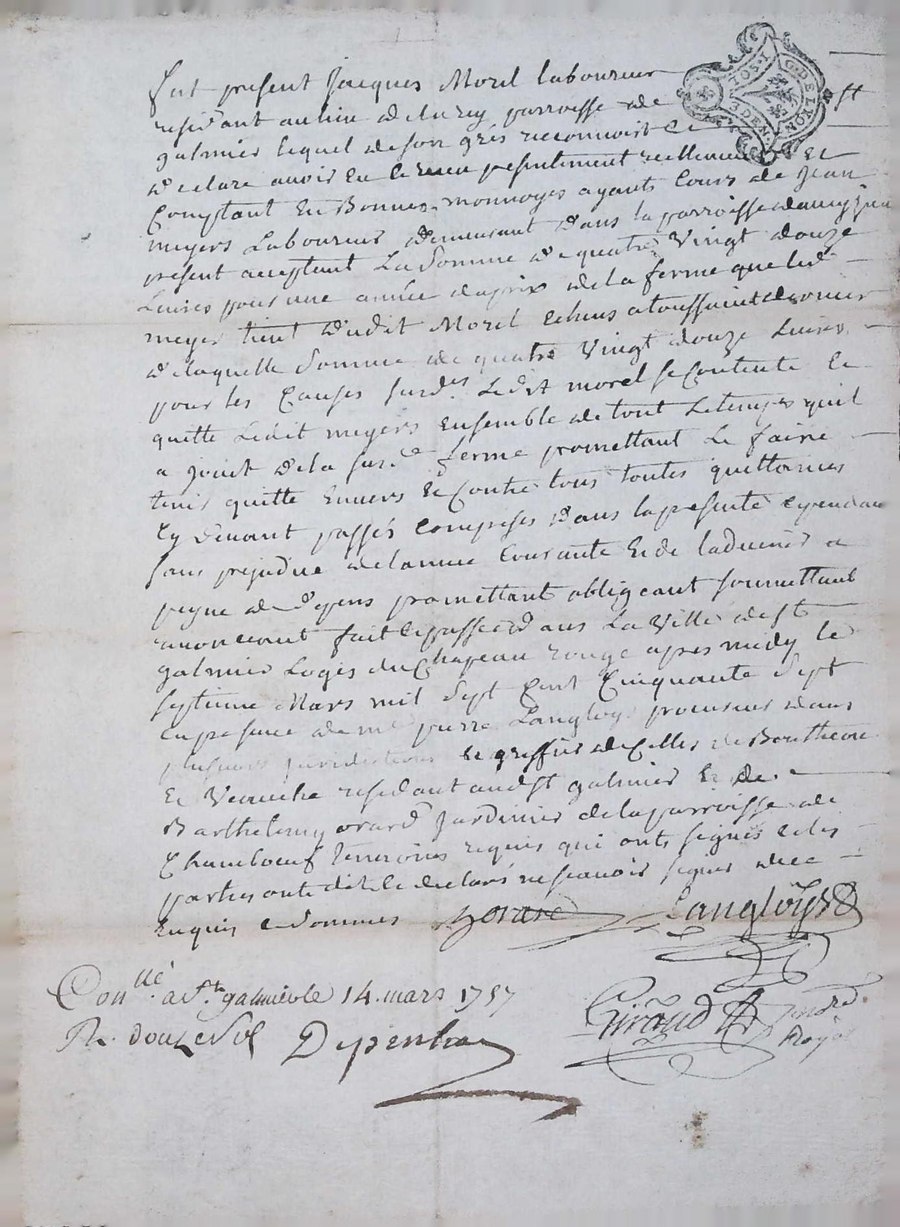 G. DE LYON
TOS. I
3 DEN.
fut present Jacques Morel laboureur
residant au lieu de parroisse de St
galmier lequel de son grés reconnoist et
declare avoir eu et receu presentement reellement et
comptant en Bonnes monnoyes ayants Cours de Jean
meyer Laboureur demeurant Dans la parroisse
present acceptant La somme de quatre Vingt douze
Livres pour une année du prix de la ferme que led.
meyer tient dudit Morel echeus a toussaint dernier
de laquelle somme de quatre Vingt douze Livres
pour les Causes surd.es Ledit morel se Contente et
quitte Ledit meyer ensemble de tout Le temps quil
a Jouit de la sus.te ferme promettant Le faire
tenir quitte envers et Contre tous toutes quittances
Cy devant passés comprises Dans la presente Cependant
sans prejudice de lannée Courante et de ladvenir a
peyne de depens promettant obligeant soumettant
renoncant fait et passé Dans La Ville de St
galmier Logis du Chapeau rouge apres midy le
septieme Mars mil sept Cent Cinquante sept
en presence de me pierre Langlois procureur dans
plusieurs juridictions et greffier de Celles de Boutheon
et Veauche residant aud St galmier et de
Barthelemy orard Jardinier de la parroisse de
Chamboeuf temoins requis qui onts signés et les
parties ont dit et declaré ne scavoir signer de ce
enquis et sommés orard Langlois
Con.llé a St. galmier le 14. mars 1757
R. douze sol
Giraud
Royal